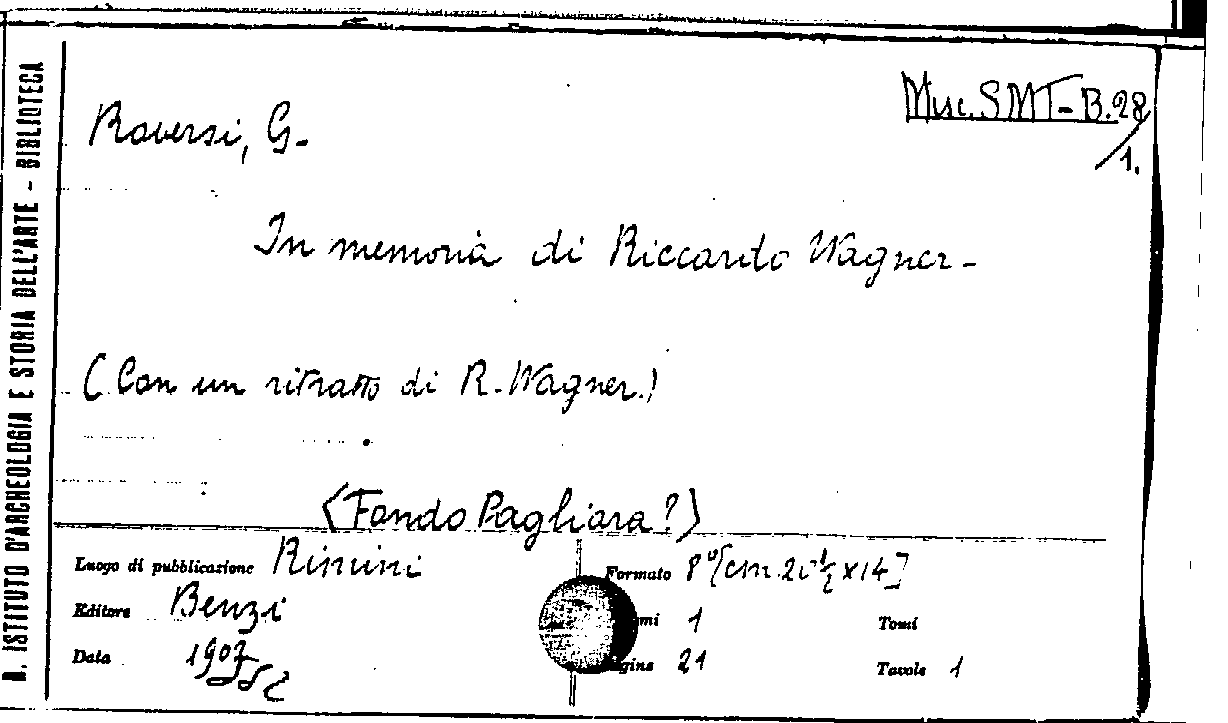 R. ISTITUTO D'ARCHEOLOGIA E STORIA DELL'ARTE - BIBLIOTECA
Misc. SMT-B.28/1.
Roversi, G-
In memoria di Riccardo Wagner-
(Con un ritratto di R. Wagner.)
(Fondo Pagliara?)
Luogo di pubblicazione Rimini
Formato 8° [cm. 20½ x 14]
Editore Benzi
mi 1
Tomi
Data 1907
gine 21
Tavole 1